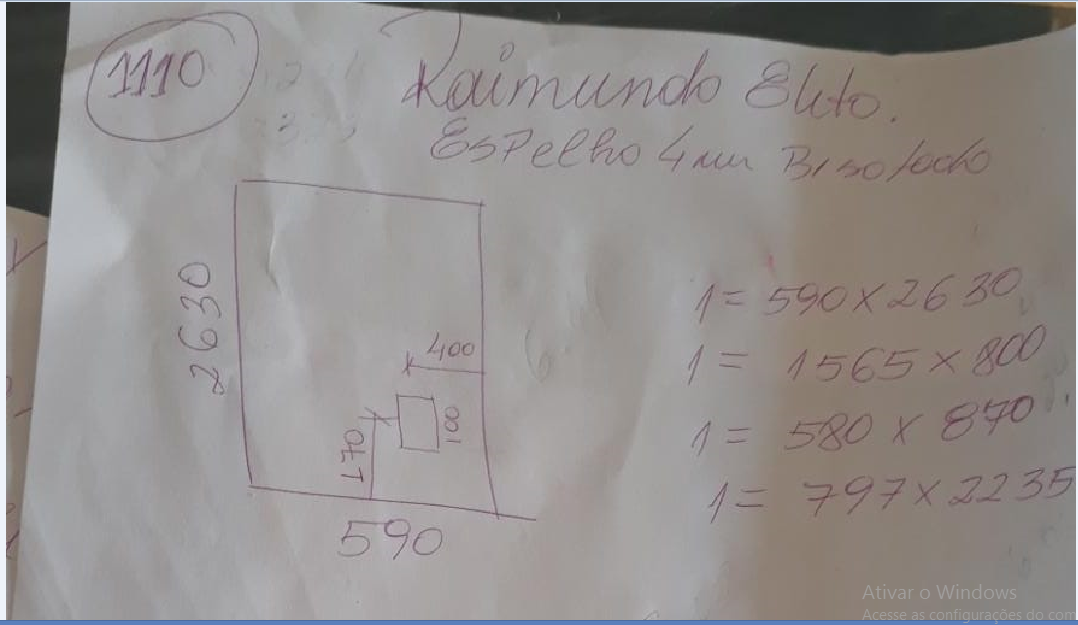 1110
Raimundo Elito.
Espelho 4mm Bisotado
2630
400
100
170
590
1 = 590 x 2630
1 = 1565 x 800
1 = 580 x 870
1 = 797 x 2235
Ativar o Windows
Acesse as configurações do com